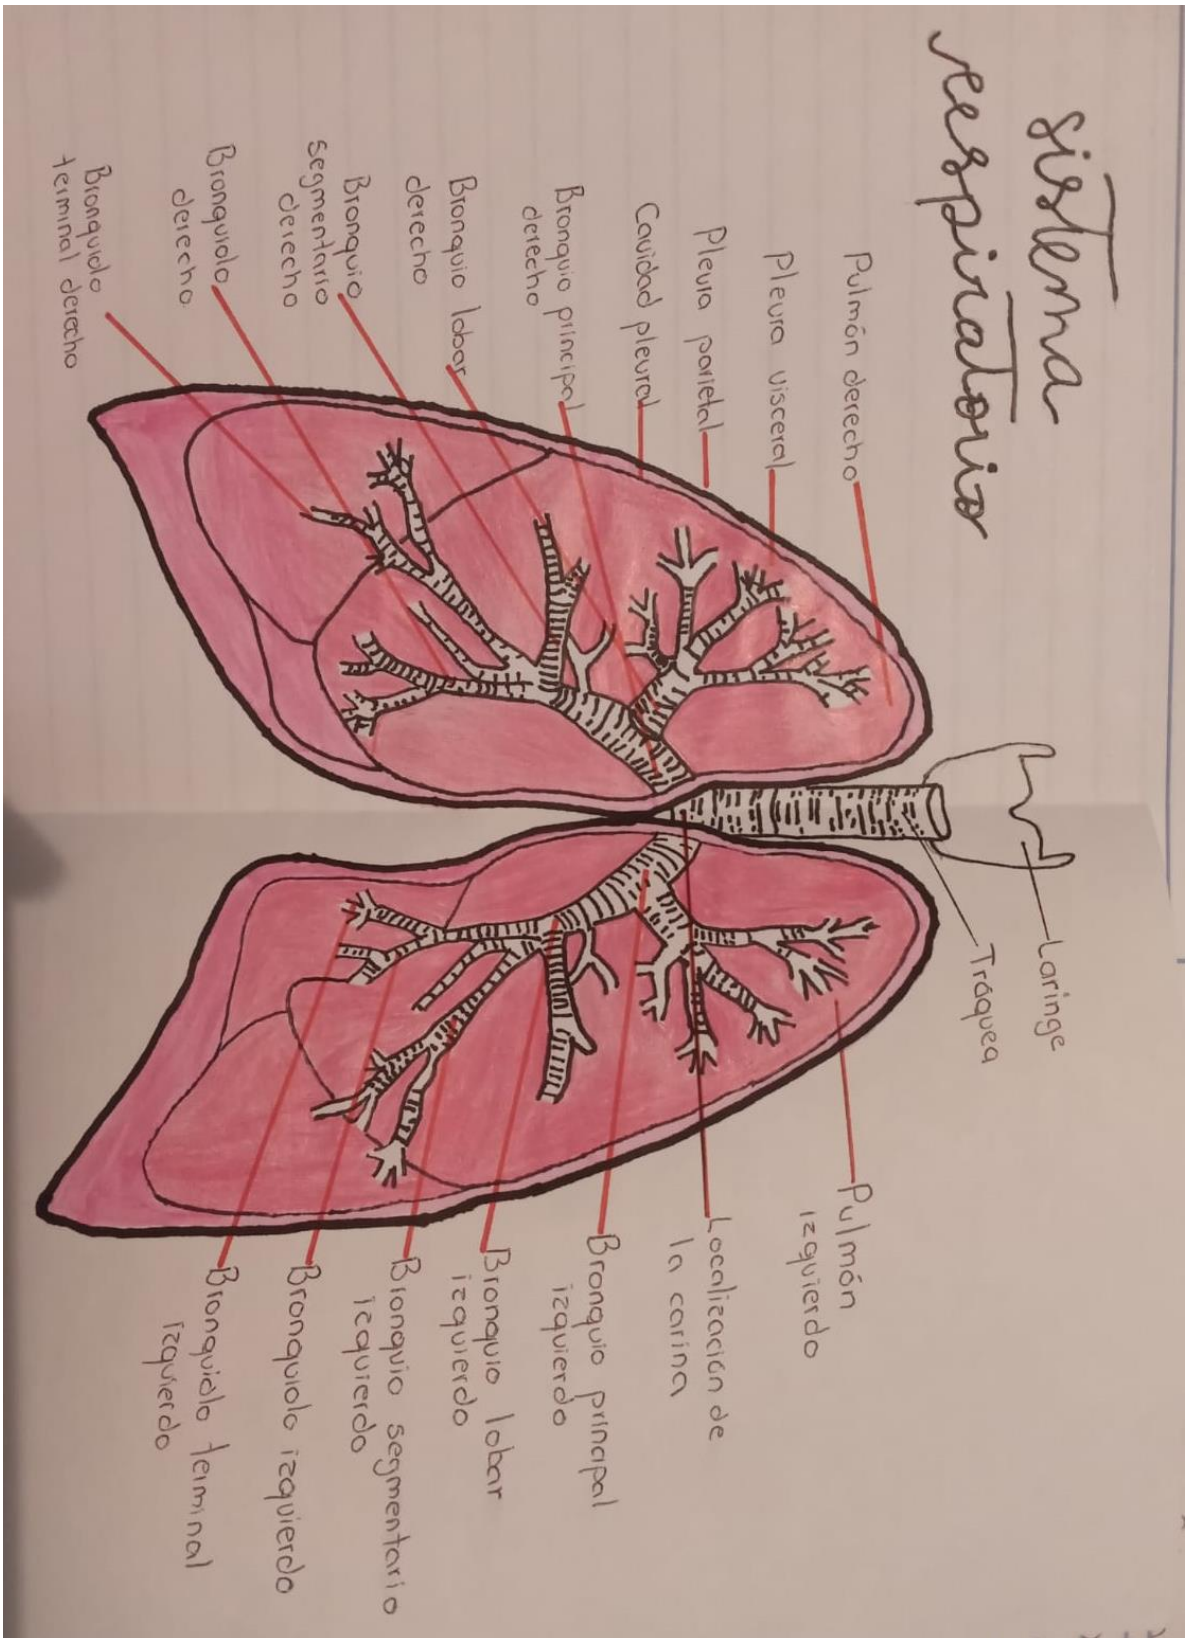 sistema
respiratorio
Pulmón derecho
Pleura visceral
Pleura parietal
Cavidad pleural
Bronquio principal
derecho
Bronquio lobar
derecho
Bronquio
segmentario
derecho
Bronquiolo
derecho
Bronquiolo
terminal derecho
Laringe
Tráquea
Pulmón
izquierdo
Localización de
la carina
Bronquio principal
izquierdo
Bronquio lobar
izquierdo
Bronquio segmentario
izquierdo
Bronquiolo izquierdo
Bronquiolo terminal
izquierdo